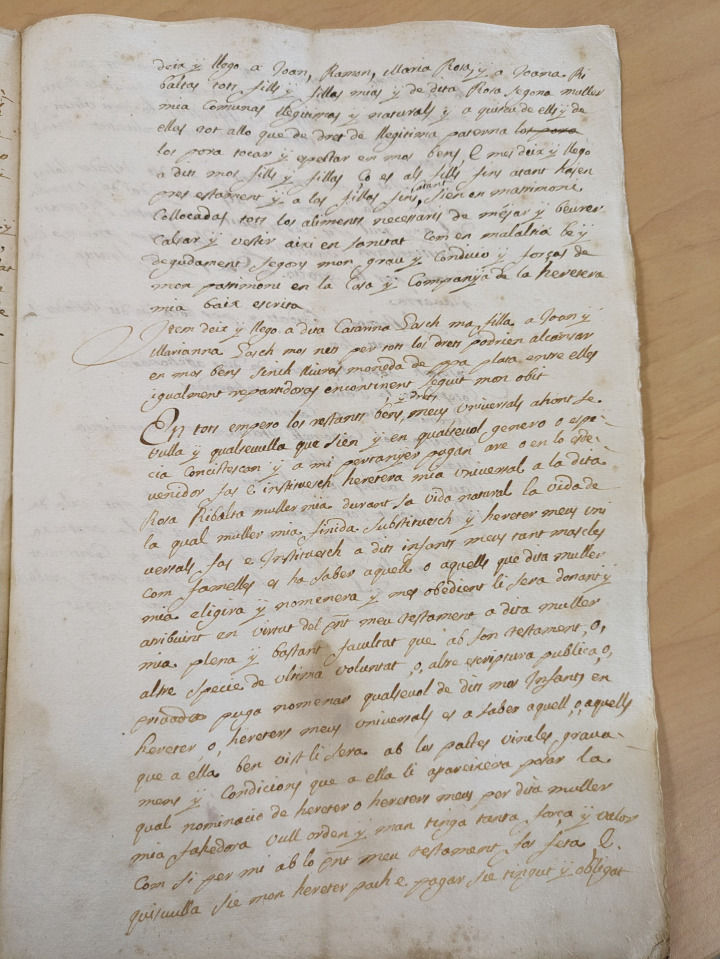 deix y llego a Joan, Ramon, Maria Rosa, y a Joana Ri
baltas tots fills y fillas mias y de dita Rosa segona muller
mia comunas llegitimas y naturals y a quiscu de ells y de
ellas tot allo que de dret de llegitima paterna los pora
los pora tocar y espectar en mos bens E mes deix y llego
a dits mos fills y fillas ço es als fills fins atant hajen
pres estament y a las fillas fins atant sien en matrimoni
collocadas tots los aliments necessaris de mejar y beurer
calsar y vestir aixi en sanitat com en malaltia be y
degudament segons mon grau y condicio y forças de
mon patrimoni en la casa y companyia de la heretera
mia baix escrita
Item deix y llego a dita Catarina Gasch ma filla a Joan y
Marianna Gasch mos nets per tots los drets podrien alcansar
en mos bens sinch lliuras moneda de ppa plata entre elles
igualment repartidoras encontinent seguit mon obit
En tots empero los restants bens y drets meus universals ahont se
vulla y qualsevulla que sien y en qualsevol genero o espe
cia concistescan y a mi pertanyer pugan are o en lo esde-
venidor fas e instituesch heretera mia universal a la dita
Rosa Ribalta muller mia durant sa vida natural la vida de
la qual muller mia finida substituesch y hereter meus uni
versals fas e instituesch a dits infants meus tant mascles
com famelles es ha saber aquell o aquells que dita muller
mia eligira y nomenera y mes obedient li sera donant y
atribuint en virtut del pnt meu testament a dita muller
mia plena y bastant facultat que ab son testament, o,
altre specie de ultima voluntat, o, altre escriptura publica, o,
privada puga nomenar qualsevol de dits mos infants en
hereter, o, hereters meus universals es a saber aquell, o, aquells
que a ella ben vist li sera ab los pactes vincles grava-
mens y condicions que a ella li apareixera posar la
qual nominacio de hereter o hereters meus per dita muller
mia fahedora vull orden y man tinga tanta força y valor
com si per mi ab lo pnt meu testament fos feta E.
quisvulla sie mon hereter pach e pagar sie tingut y obligat